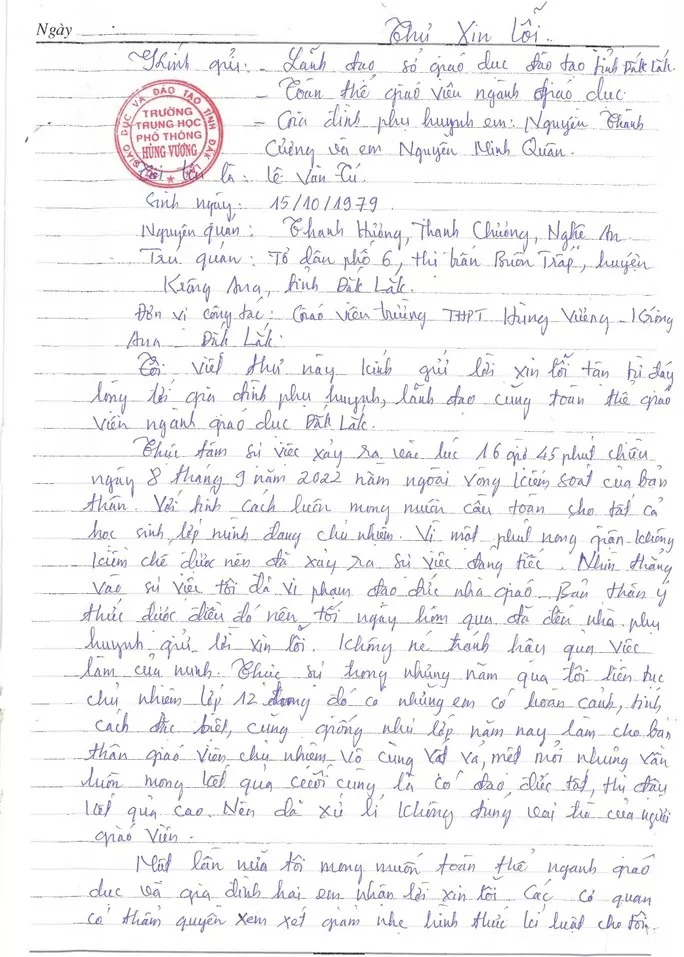 Ngày
Thư Xin lỗi.
Kính gửi: - Lãnh đạo sở giáo dục đào tạo tỉnh Đắk Lắk.
- Toàn thể giáo viên ngành giáo dục.
- Gia đình phụ huynh em: Nguyễn Thành
Cường và em Nguyễn Minh Quân.
SỞ GIÁO DỤC VÀ ĐÀO TẠO TỈNH ĐẮK
TRƯỜNG
TRUNG HỌC
PHỔ THÔNG
HÙNG VƯƠNG
Tôi tên là: Lê Văn Tú.
Sinh ngày: 15/10/1979.
Nguyên quán: Thanh Hưởng, Thanh Chương, Nghệ An.
Trú quán: Tổ dân phố 6, thị trấn Buôn Trấp, huyện
Krông Ana, tỉnh Đắk Lắk.
Đơn vị công tác: Giáo viên trường THPT Hùng Vương - Krông
Ana - Đắk Lắk.
Tôi viết thư này kính gửi lời xin lỗi tận từ đáy
lòng tới gia đình phụ huynh, lãnh đạo cùng toàn thể giáo
viên ngành giáo dục Đắk Lắk.
Thực tâm sự việc xảy ra vào lúc 16 giờ 45 phút chiều
ngày 8 tháng 9 năm 2022 nằm ngoài vòng kiểm soát của bản
thân. Với tính cách luôn mong muốn cầu toàn cho tất cả
học sinh lớp mình đang chủ nhiệm. Vì một phút nóng giận không
kiềm chế được nên đã xảy ra sự việc đáng tiếc. Nhìn thẳng
vào sự việc tôi đã vi phạm đạo đức nhà giáo. Bản thân ý
thức được điều đó nên tối ngày hôm qua đã đến nhà phụ
huynh gửi lời xin lỗi. Không né tránh hậu quả việc
làm của mình. Thực sự trong những năm qua tôi liên tục
chủ nhiệm lớp 12 trong đó có những em có hoàn cảnh, tính
cách đặc biệt, cũng giống như lớp năm nay làm cho bản
thân giáo viên chủ nhiệm vô cùng vất vả, mệt mỏi nhưng vẫn
luôn mong kết quả cuối cùng là có đạo đức tốt, thi đậu
kết quả cao. Nên đã xử lí không đúng vai trò của người
giáo viên.
Một lần nữa tôi mong muốn toàn thể ngành giáo
dục và gia đình hai em nhận lời xin lỗi. Các cơ quan
có thẩm quyền xem xét giảm nhẹ hình thức kỉ luật cho tôi.